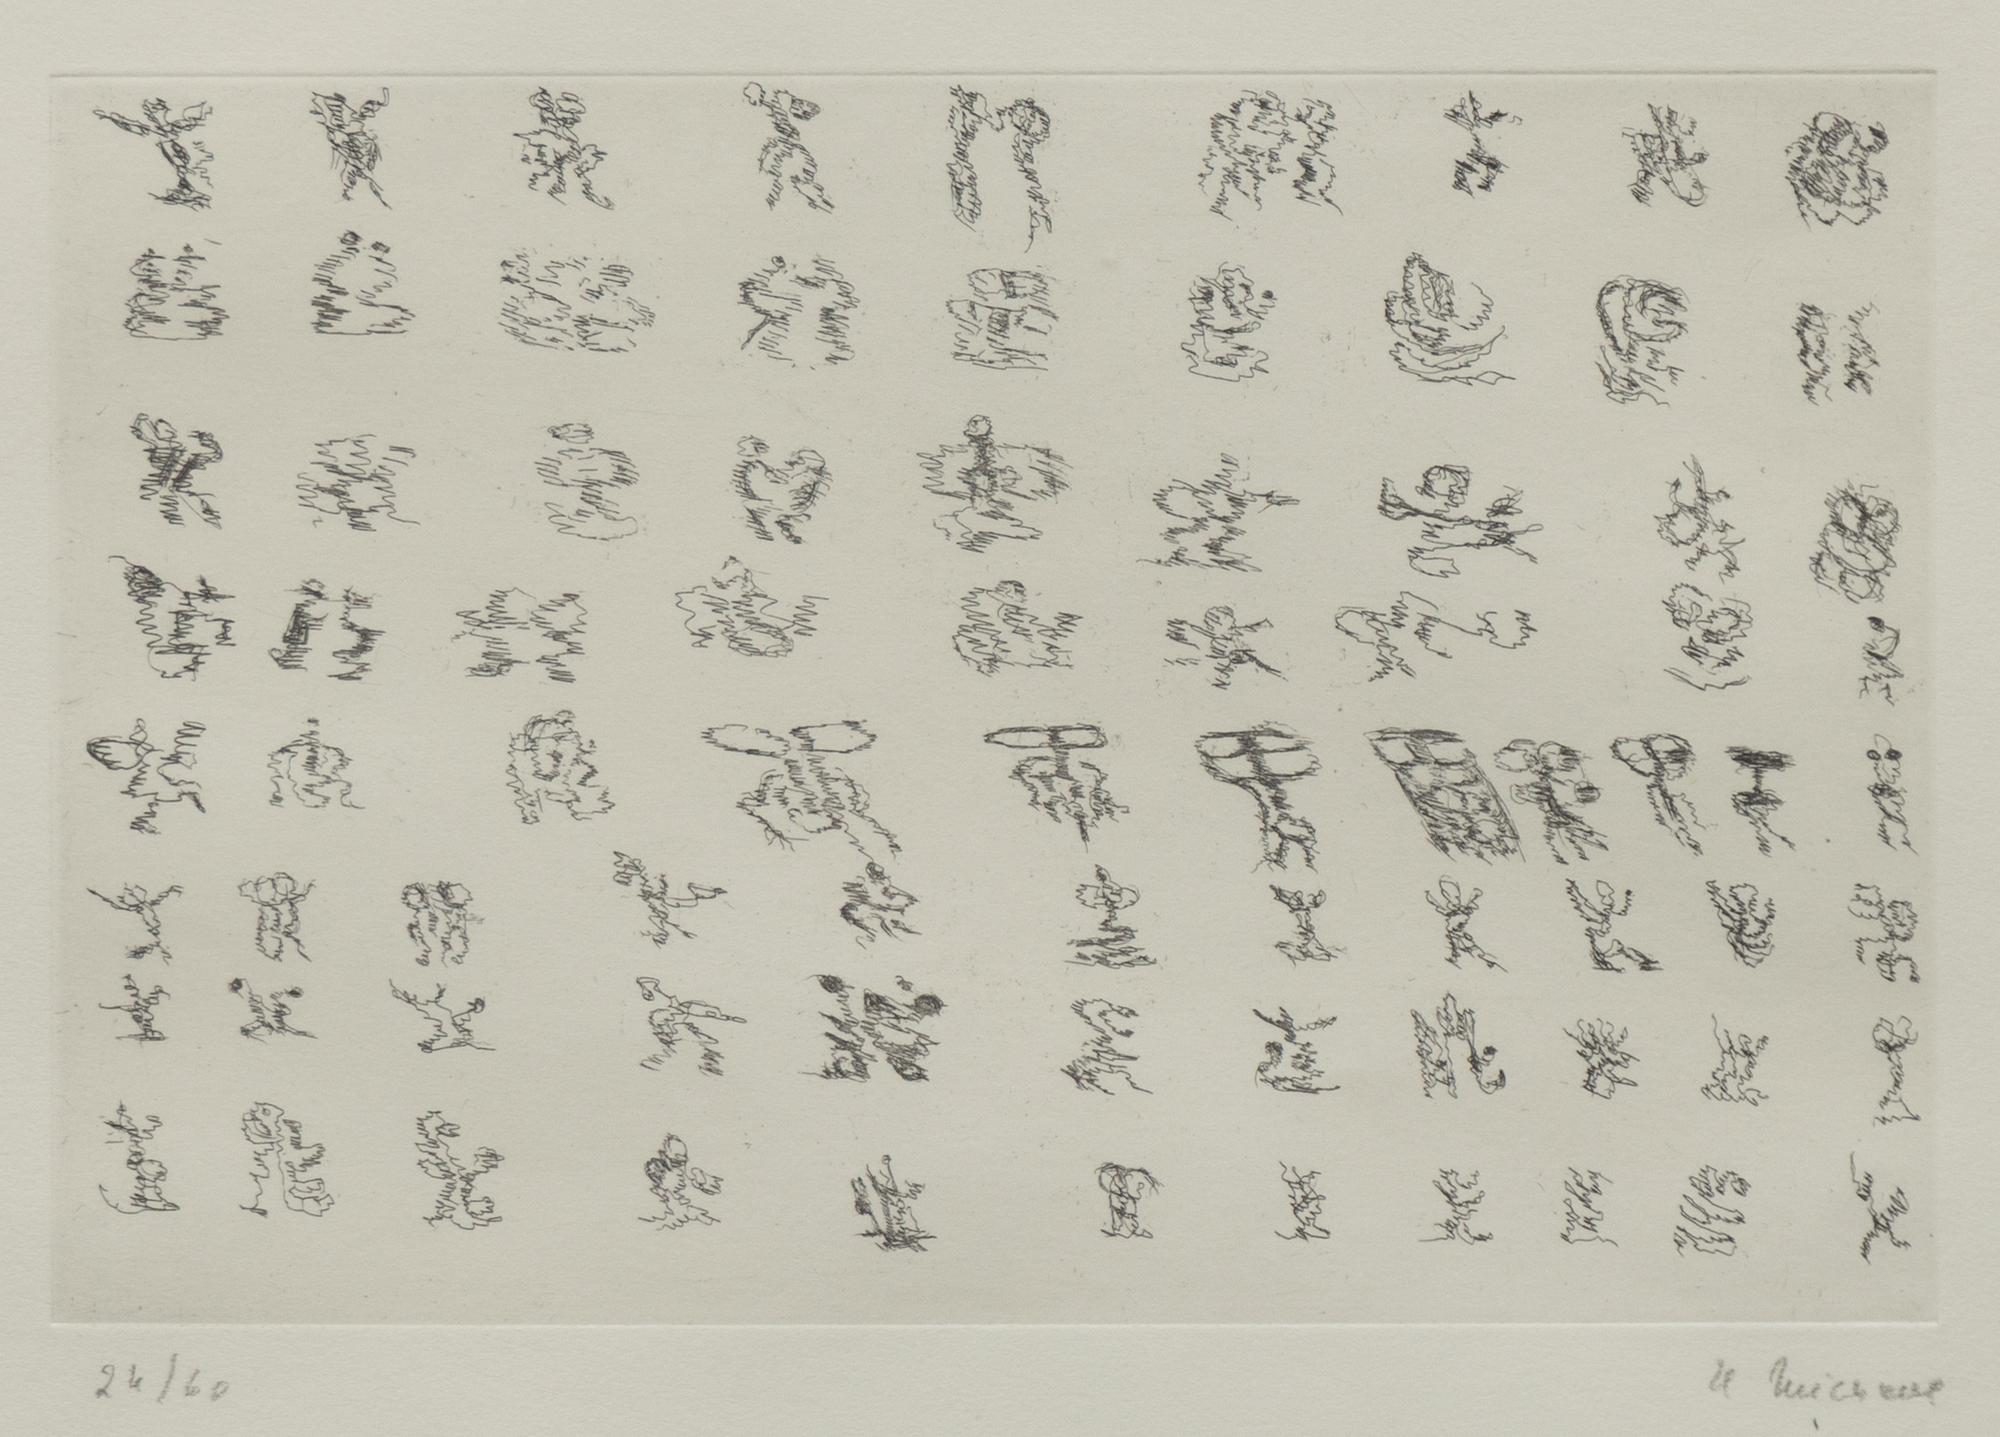 24/60
H Michaux